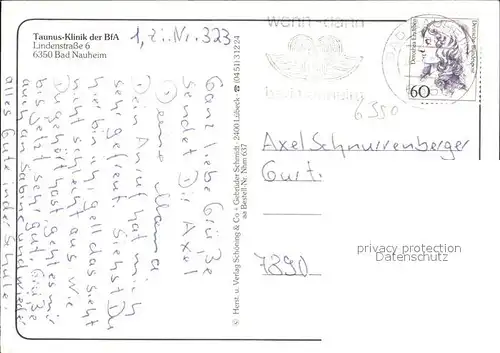 Taunus-Klinik der BfA
Lindenstraße 6
6350 Bad Nauheim
1, Zi. Nr. 323
wenn dann
BAD
Deutsche Bundespost
60
6350
Ganz liebe Grüße
sendet Dir Axel
Deine Mama
Dein Anruf hat mich
sehr gefreut. Siehst Du
hier bin ich, gell das sieht
nicht schlecht aus. Wie
Du gehört hast geht es mir
bis jetzt sehr gut. Grüße
auch an Sabine und
alles Gute in der Schule.
© Herst. u. Verlag Schöning & Co + Gebrüder Schmidt · 2400 Lübeck · ☎ (0451) 31224
aa Bestell-Nr. Nhm 637
Axel Schnurrenberger
Gurt.
7890
privacy protection
Datenschutz